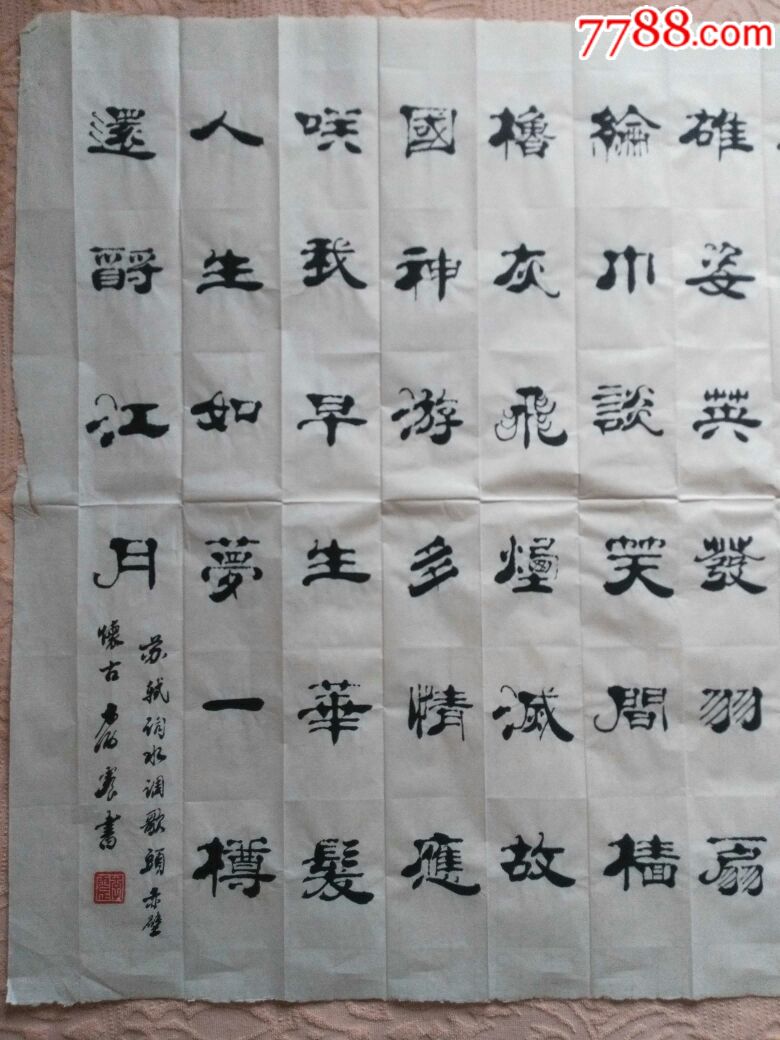 雄姿英發羽扇
綸巾談笑間檣
櫓灰飛煙滅故
國神游多情應
咲我早生華髮
人生如夢一樽
還酹江月
苏軾詞水调歌頭赤壁
懷古
書
7788.com